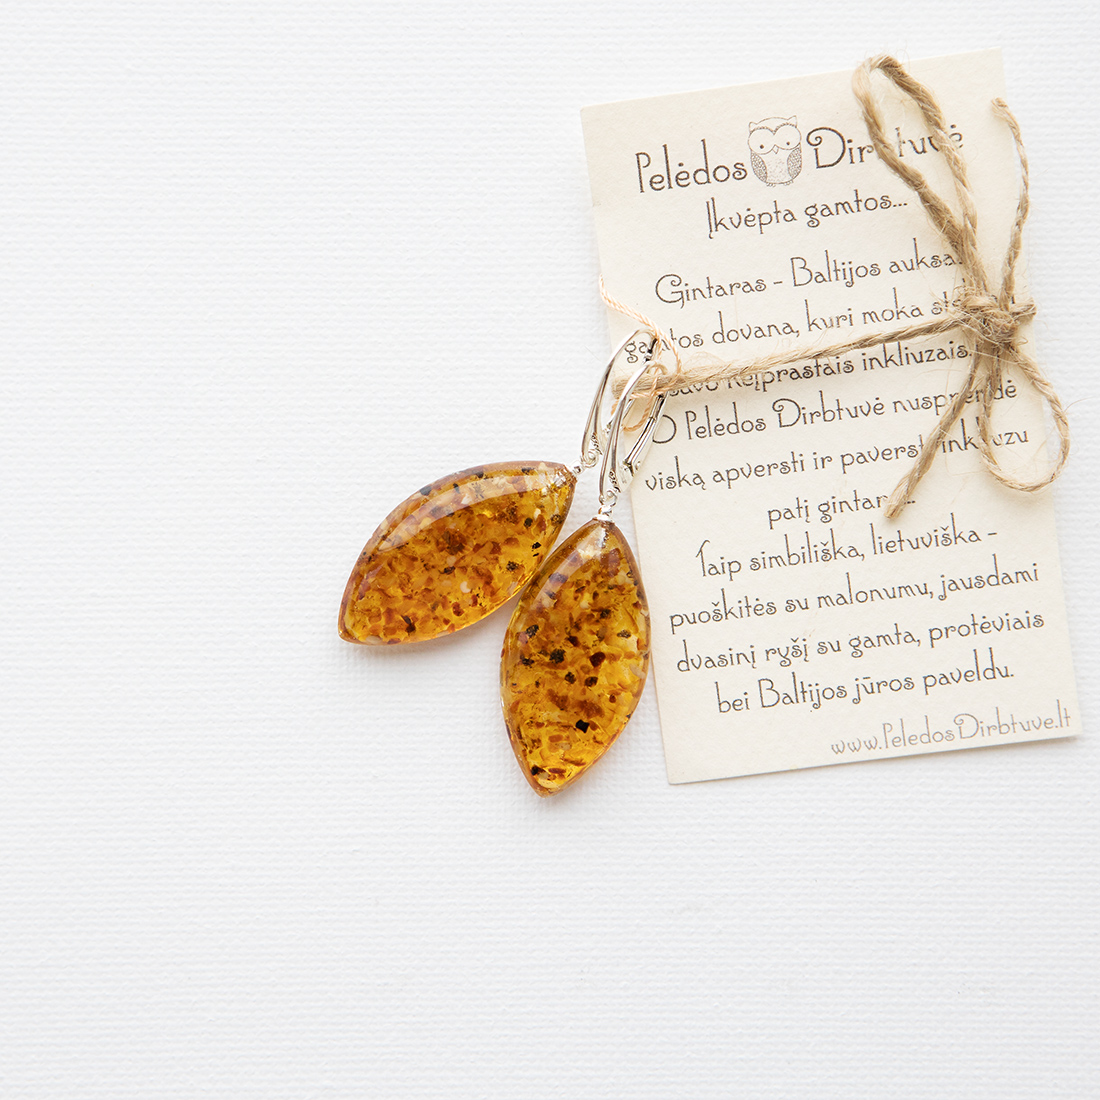 Pelėdos Dirbtuvė
Įkvėpta gamtos...
Gintaras - Baltijos auksas,
gamtos dovana, kuri moka
savo neįprastais inkliuzais.
O Pelėdos Dirbtuvė nusprendė
viską apversti ir paversti inkliuzu
patį gintarą -
Taip simbiliška, lietuviška -
puoškitės su malonumu, jausdami
dvasinį ryšį su gamta, protėviais
bei Baltijos jūros paveldu.
www.PeledosDirbtuve.lt